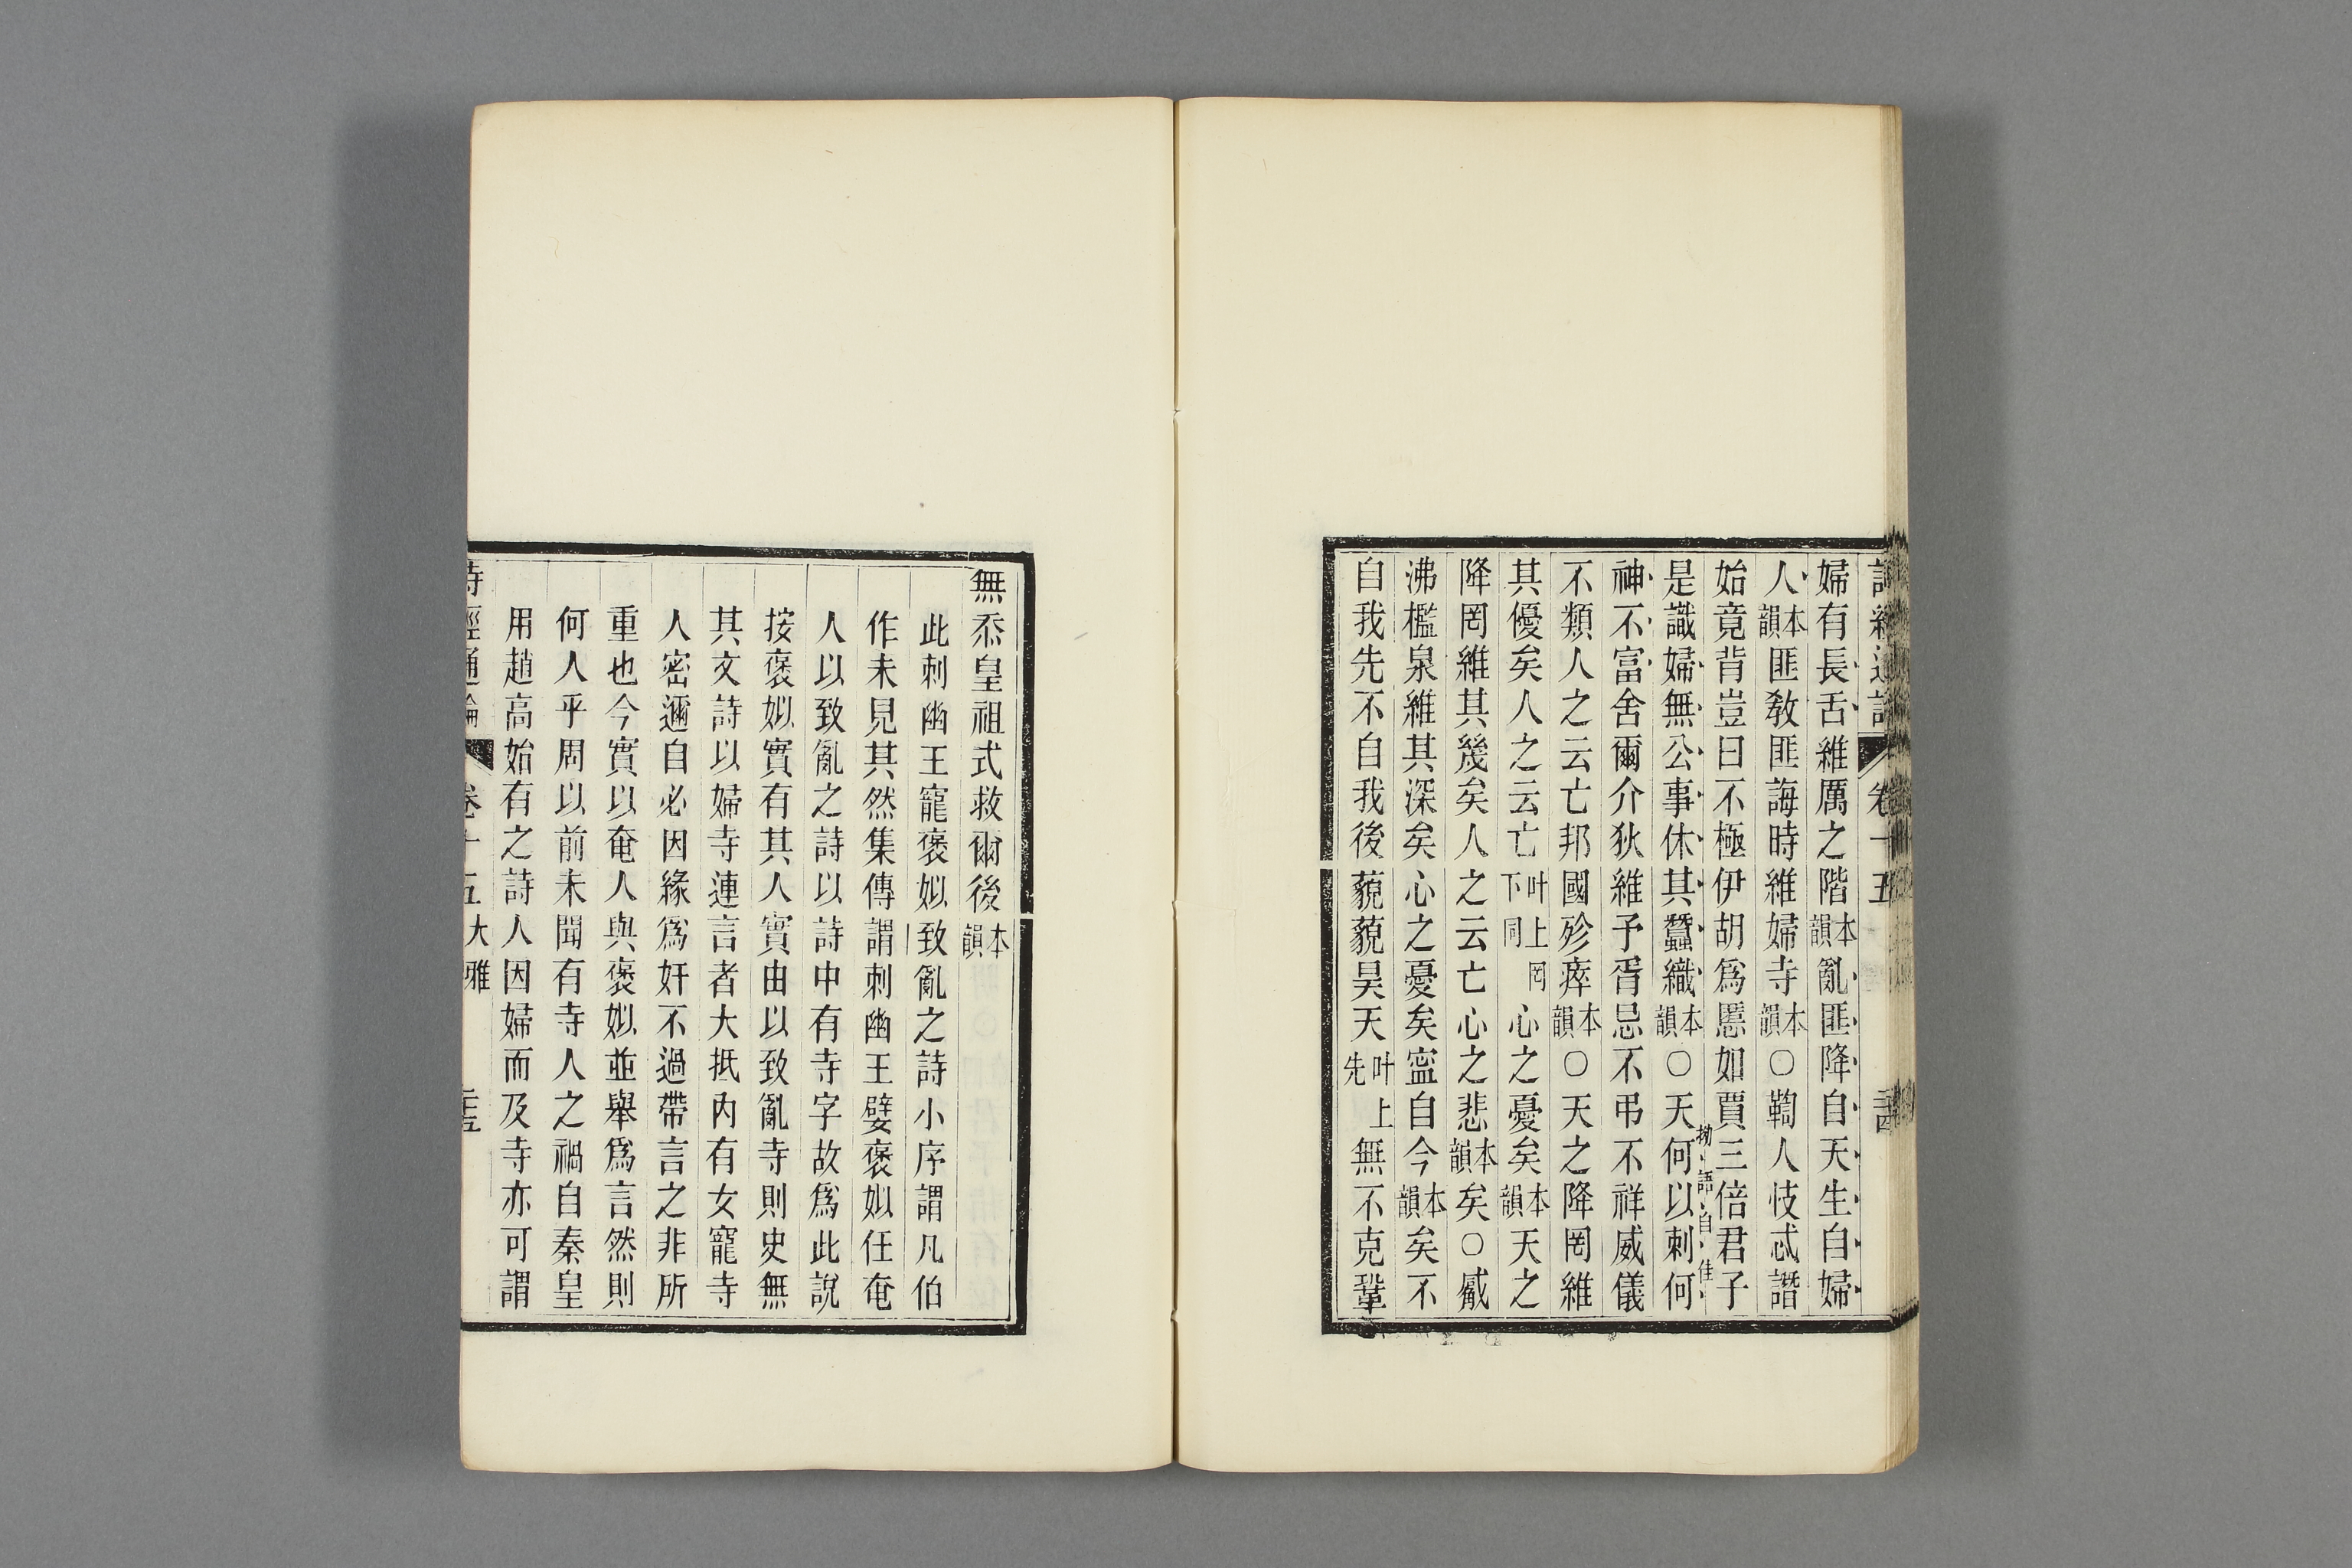 婦有長舌維厲之階本韻亂匪降自天生自婦
人本韻匪敎匪誨時維婦寺本韻○鞫人忮忒譖
始竟背豈曰不極伊胡爲慝如賈三倍君子
拗語自佳
是識婦無公事休其蠶織本韻○天何以刺何
神不富舍爾介狄維予胥忌不弔不祥威儀
不類人之云亡邦國殄瘁本韻○天之降罔維
其優矣人之云亡叶上罔下同心之憂矣本韻天之
降罔維其幾矣人之云亡心之悲本韻矣○觱
沸檻泉維其深矣心之憂矣寍自今本韻矣不
自我先不自我後藐藐昊天叶上先無不克鞏
無忝皇祖式救爾後本韻
此刺幽王寵褒姒致亂之詩小序謂凡伯
作未見其然集傳謂刺幽王嬖褒姒任奄
人以致亂之詩以詩中有寺字故爲此說
按褒姒實有其人實由以致亂寺則史無
其文詩以婦寺連言者大抵內有女寵寺
人密邇自必因緣爲奸不過帶言之非所
重也今實以奄人與褒姒並舉爲言然則
何人乎周以前未聞有寺人之禍自秦皇
用趙高始有之詩人因婦而及寺亦可謂
詩經通論 卷十五大雅 二十五